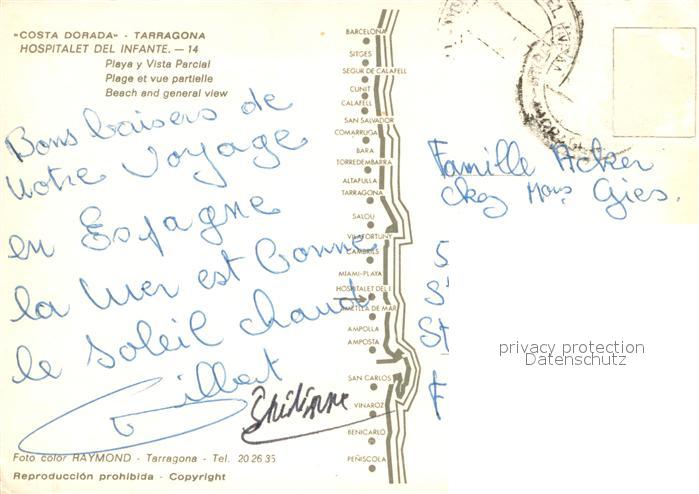 "COSTA DORADA" - TARRAGONA
HOSPITALET DEL INFANTE. — 14
Playa y Vista Parcial
Plage et vue partielle
Beach and general view
Bons baisers de
Notre voyage
en Espagne
la mer est bonne
le soleil chaud
Gilbert
BARCELONA
SITGES
SEGUR DE CALAFELL
CUNIT
CALAFELL
SAN SALVADOR
COMARRUGA
BARA
TORREDEMBARRA
ALTAFULLA
TARRAGONA
SALOU
VILAFORTUNY
CAMBRILS
MIAMI-PLAYA
HOSPITALET DEL I.
AMETLLA DE MAR
AMPOLLA
AMPOSTA
SAN CARLOS
VINAROZ
BENICARLO
PEÑISCOLA
Famille Acker
chez Mons. Gies.
S
S
St
F
privacy protection
Datenschutz
Foto color RAYMOND - Tarragona - Tel. 20 26 35
Reproducción prohibida - Copyright